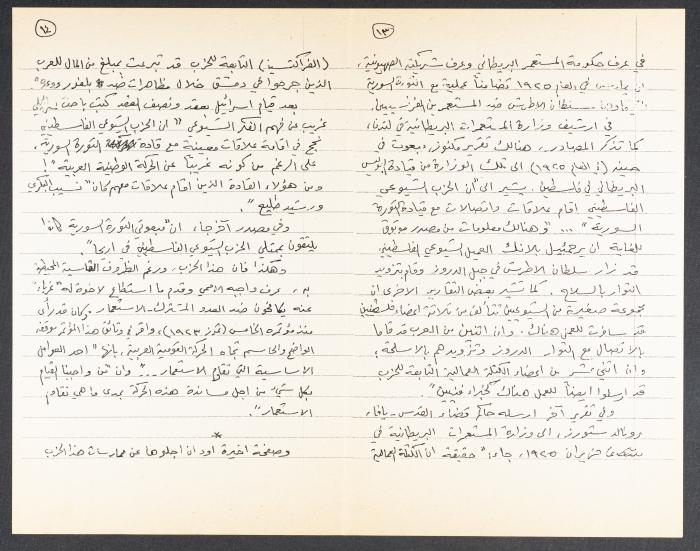 ١٣
في عرف حكومة المستعمر البريطاني وعرف شريكته الصهيونية،
ان يمارس في العام ١٩٢٥ تضامناً عملياً مع الثورة السورية
سلطان الاطرش ضد المستعمرين الفرنسيين.
في ارشيف وزارة المستعمرات البريطانية في لندن،
كما تذكر المصادر، هنالك تقرير مكتوم، مبعوث في
حينه (في العام ١٩٢٥) الى تلك الوزارة من قيادة البوليس
البريطاني في فلسطين. يشير الى أن الحزب الشيوعي
الفلسطيني اقام علاقات واتصالات مع قيادة الثورة
السورية" ... "وهنالك معلومات من مصدر موثوق
للغاية ان يرحمئيل بلانك العميل الشيوعي الفلسطيني
قد زار سلطان الاطرش في جبل الدروز وقام بتزويد
الثوار بالسلاح. كما تشير بعض التقارير الاخرى ان
مجموعة صغيرة من الشيوعيين تتألف من ثلاثة اعضاء فلسطينيين
قد سافرت للعمل هناك. وان اثنين من العرب قد قاما
بالاتصال مع الثوار الدروز وتزويدهم بالاسلحة،
وان اثني عشر من اعضاء الكتلة العمالية التابعة للحزب
قد ارسلوا ايضاً للعمل هناك كخبراء فنيين".
وفي تقرير آخر ارسله حاكم قضاء القدس - يافا،
رونالد ستورز، الى وزارة المستعمرات البريطانية في
حزيران ١٩٢٥، جاء: "حقيقة ان الكتلة العمالية
١٤
(الفراكتسيا) التابعة للحزب قد تبرعت بمبلغ من المال للعرب
الذين جرحوا في دمشق خلال مظاهرات ضد بلفور ووعده"
بعد قيام اسرائيل بعقد ونصف العقد كتب باحث اسرائيلي
غريب عن فهم الفكر الشيوعي "ان الحزب الشيوعي الفلسطيني
نجح في اقامة علاقات معينة مع قادة الثورة السورية،
على الرغم من كونه غريباً عن الحركة الوطنية العربية"!
ومن هؤلاء القادة الذين اقام علاقات معهم كان "نسيب البكري
ورشيد طليع".
وفي مصدر آخر جاء، ان "مبعوثي الثورة السورية كانوا
يلتقون بممثلي الحزب الشيوعي الفلسطيني في اريحا".
وهكذا فان هذا الحزب، ورغم الظروف القاسية المحيطة
به، عرف واجبه الاممي وقدم ما استطاع لاخوة له "غرباء"
عنه يكافحون ضد العدو المشترك - الاستعمار. وكان قد رأى
منذ مؤتمره الخامس (تموز ١٩٢٣)، واقر في وثائق هذا المؤتمر موقفه
الواضح والحاسم تجاه الحركة القومية العربية، بانها "احد العوامل
الاساسية التي تقاوم الاستعمار ..." وان "من واجبنا القيام
بكل شيء من اجل مساندة هذه الحركة بمدى ما هي تقاوم
الاستعمار".
*
وصفحة اخيرة اود ان اجلوها عن ممارسات هذا الحزب